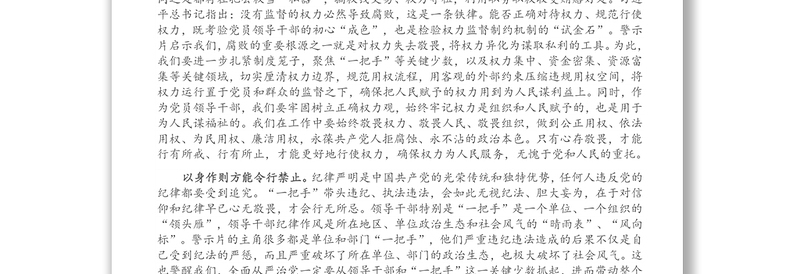 平总书记指出：没有监督的权力必然导致腐败，这是一条铁律。能否正确对待权力、规范行使
权力，既考验党员领导干部的初心“成色”，也是检验权力监督制约机制的“试金石”。警示
片启示我们，腐败的重要根源之一就是对权力失去敬畏，将权力异化为谋取私利的工具。为此，
我们要进一步扎紧制度笼子，聚焦“一把手”等关键少数，以及权力集中、资金密集、资源富
集等关键领域，切实厘清权力边界，规范用权流程，用客观的外部约束压缩违规用权空间，将
权力运行置于党员和群众的监督之下，确保把人民赋予的权力用到为人民谋利益上。同时，作
为党员领导干部，我们要牢固树立正确权力观，始终牢记权力是组织和人民赋予的，也是用于
为人民谋福祉的。我们在工作中要始终敬畏权力、敬畏人民、敬畏组织，做到公正用权、依法
用权、为民用权、廉洁用权，永葆共产党人拒腐蚀、永不沾的政治本色。只有心存敬畏，才能
行有所戒、行有所止，才能更好地行使权力，确保权力为人民服务，无愧于党和人民的重托。
以身作则方能令行禁止。纪律严明是中国共产党的光荣传统和独特优势，任何人违反党的
纪律都要受到追究。“一把手”带头违纪、执法违法，会如此无视纪法、胆大妄为，在于对信
仰和纪律早已心无敬畏，才会行无所忌。领导干部特别是“一把手”是一个单位、一个组织的
“领头雁”，领导干部纪律作风是所在地区、单位政治生态和社会风气的“晴雨表”、“风向
标”。警示片的主角很多都是单位和部门“一把手”，他们严重违纪违法造成的后果不仅是自
己受到纪法的严惩，而且严重破坏了所在单位、部门的政治生态，也极大破坏了社会风气。这
也警醒我们，全面从严治党一定要从领导干部和“一把手”这一关键少数抓起，进而带动整个